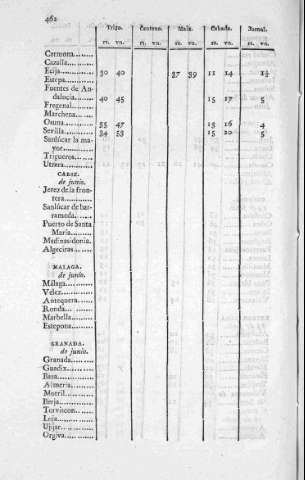 462
Trigo. Centeno. Maiz. Cebada. Jornal.
rs. vn. rs. vn. rs. vn. rs. vn. rs. vn.
Carmona
Cazalla
Ecija 30 40 37 39 11 14
Estepa
Fuentes de An-
dalucía 40 45 15 17 5
Fregenal
Marchena
Osuna 35 47 15 16 4
Sevilla 34 53 15 20 5
Sanlúcar la ma-
yor
Trigueros
Utrera
CADIZ.
de junio.
Jerez de la fron-
tera
Sanlúcar de bar-
rameda
Puerto de Santa
María
Medinasidonia
Algeciras
MALAGA.
de junio.
Málaga
Velez
Antequera
Ronda
Marbella
Estepona
GRANADA.
de junio.
Granada
Guadix
Baza
Almeria
Motril
Berja
Torvizcon
Loja
Ujijar
Orgiva